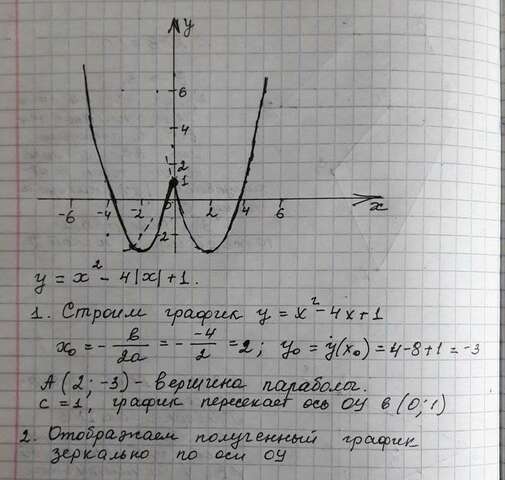 y
6
4
2
1
-6 -4 -2 0 2 4 6 x
-2
y = x² - 4|x| + 1.
1. Строим график y = x² - 4x + 1
x₀ = - b/2a = - -4/2 = 2; y₀ = y(x₀) = 4 - 8 + 1 = -3
A(2; -3) - вершина параболы.
c = 1, график пересекает ось OY в (0; 1)
2. Отображаем полученный график
зеркально по оси OY